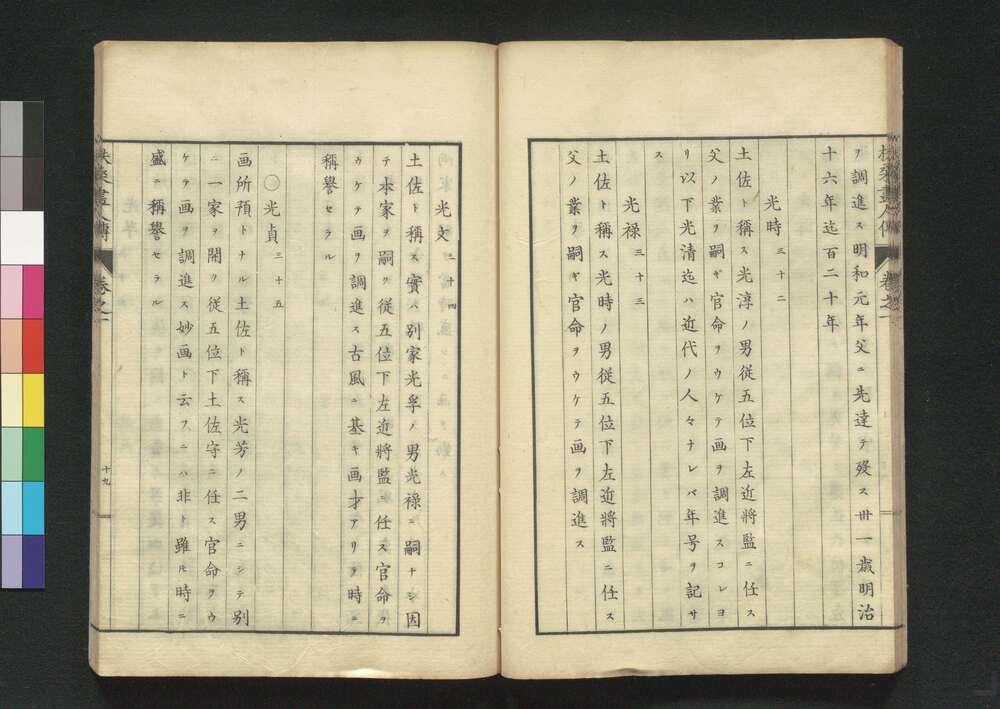 ヲ調進ス明和元年父ニ先達テ歿ス卅一歳明治
十六年迄百二十年
光時 三十二
土佐ト稱ス光淳ノ男従五位下左近將監ニ任ス
父ノ業ヲ嗣ギ官命ヲウケテ画ヲ調進スコレヨ
リ以下光清迄ハ近代ノ人々ナレバ年号ヲ記サ
ス
光禄 三十三
土佐ト稱ス光時ノ男従五位下左近將監ニ任ス
父ノ業ヲ嗣ギ官命ヲウケテ画ヲ調進ス
光文 三十四
土佐ト稱ス實ハ別家光孚ノ男光禄ニ嗣ナシ因
テ本家ヲ嗣ク従五位下左近將監ニ任ス官命ヲ
ウケテ画ヲ調進ス古風ニ基キ画才アリテ時ニ
稱譽セラル
〇光貞 三十五
画所預トナル土佐ト稱ス光芳ノ二男ニシテ別
ニ一家ヲ開ク従五位下土佐守ニ任ス官命ヲウ
ケテ画ヲ調進ス妙画ト云フニハ非ト雖ヒ時ニ
盛ニ稱譽セラル
扶桑畫人傳 卷之一
十九